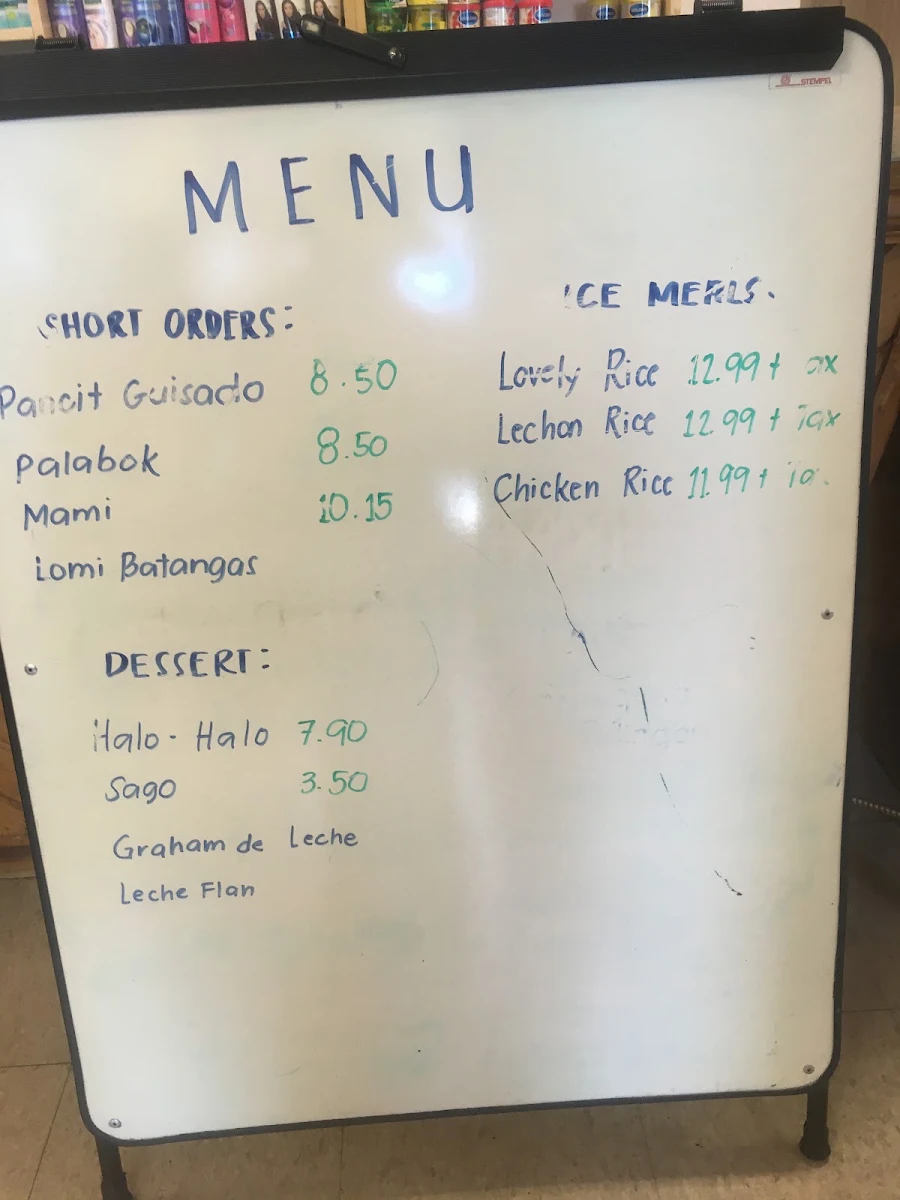 STEMPEL
MENU
SHORT ORDERS:
Pancit Guisado 8.50
Palabok 8.50
Mami 10.15
Lomi Batangas
DESSERT:
Halo-Halo 7.90
Sago 3.50
Graham de Leche
Leche Flan
ICE MEALS.
Lovely Rice 12.99 + ax
Lechon Rice 12.99 + Tax
Chicken Rice 11.99 + Ta